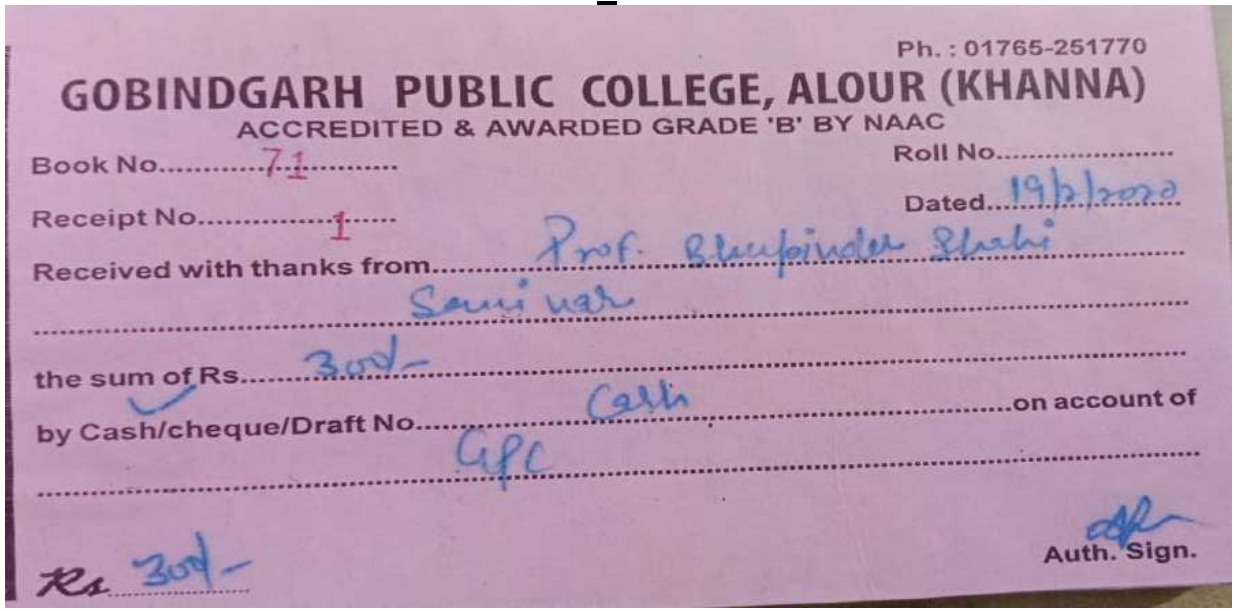 Ph. : 01765-251770
GOBINDGARH PUBLIC COLLEGE, ALOUR (KHANNA)
ACCREDITED & AWARDED GRADE 'B' BY NAAC
Book No............71............ Roll No........................
Receipt No................1...... Dated...19/2/2020
Received with thanks from........Prof. Bhupinder Shahi
Seminar
the sum of Rs.........300/-
by Cash/cheque/Draft No.........Cash.........on account of
GPC
Rs 300/-
Auth. Sign.